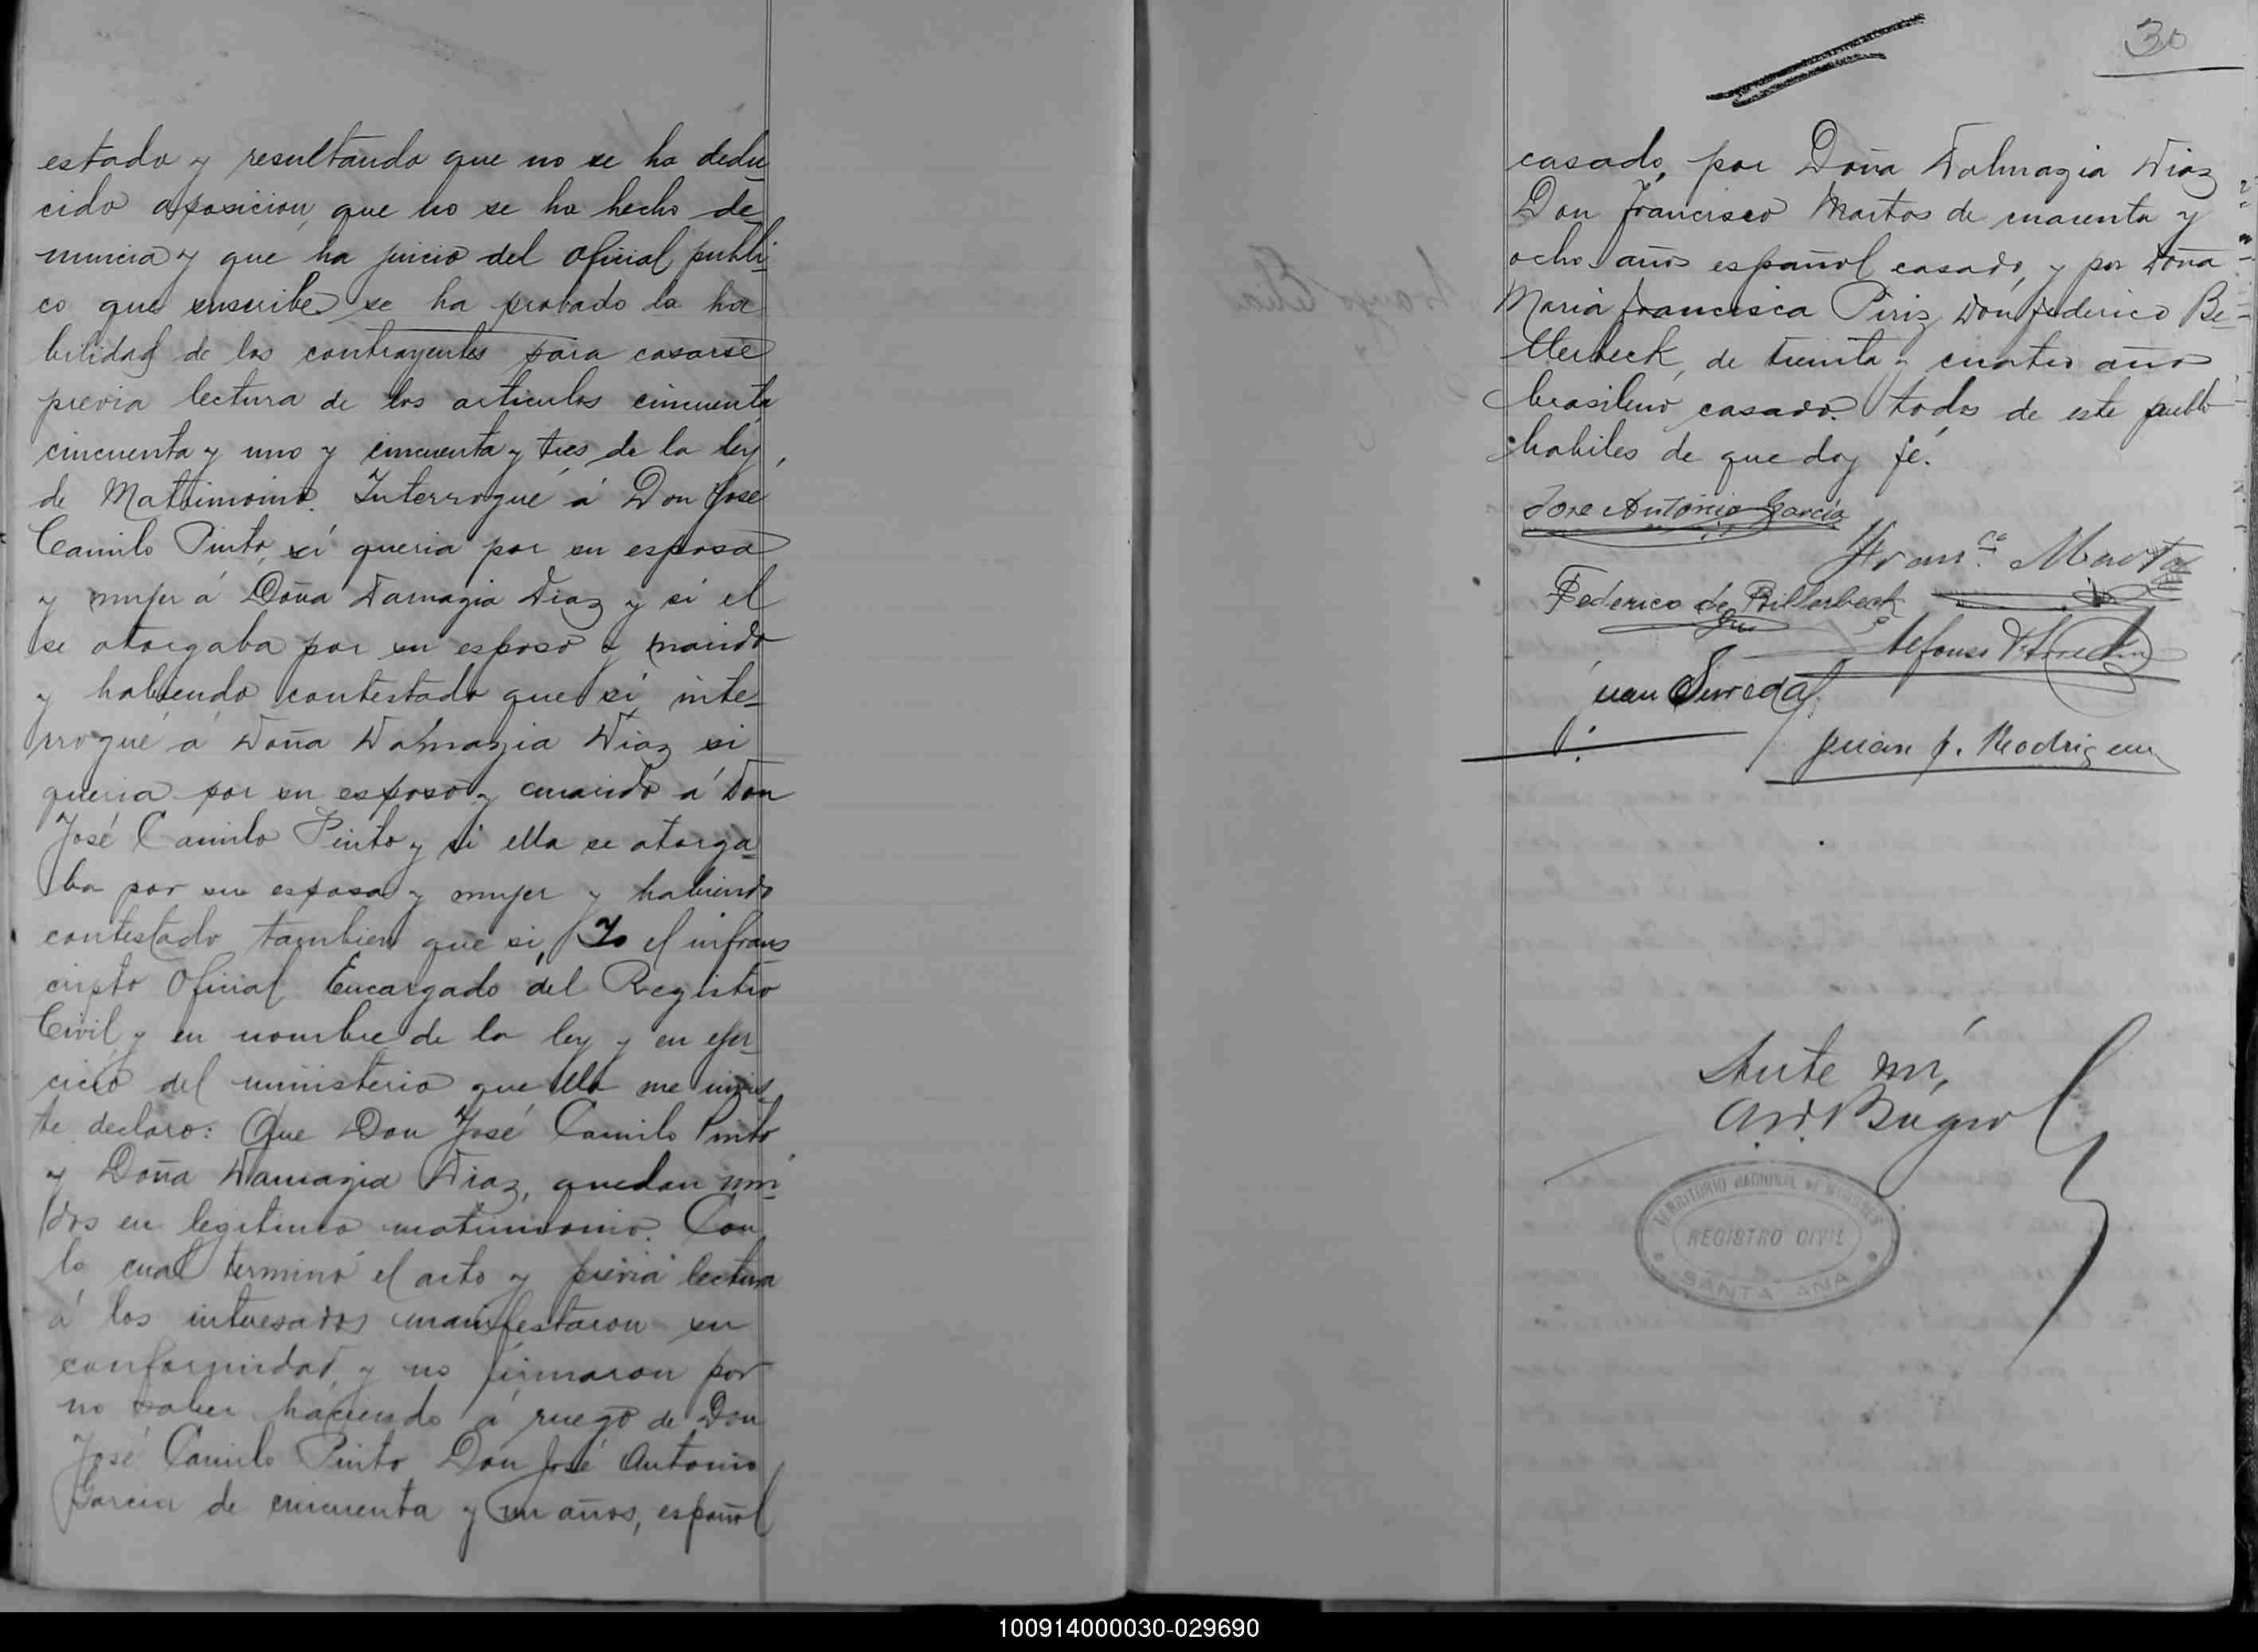 estado y resultando que no se ha dedu
cido oposicion, que no se ha hecho de-
nuncia y que ha juicio del Oficial publi-
co que suscribe se ha probado la ha
bilidad de los contrayentes para casarse
previa lectura de los articulos cincuenta
cincuenta y uno y cincuenta y tres de la ley,
de Matrimonio. Interrogué á Don José
Camilo Pinto, si queria por su esposa
y mujer á Doña Damazia Diaz y si el
se otorgaba por su esposo y marido
y habiendo contestado que si, inte-
rrogué á Doña Dalmazia Diaz si
queria por su esposo y marido á Don
José Camilo Pinto y si ella se otorga-
ba por su esposa y mujer y habiendo
contestado tambien que si, Yo el infrans
cripto Oficial Encargado del Registro
Civil y en nombre de la ley y en ejer-
cicio del ministerio que ella me invis-
te declaro: Que Don José Camilo Pinto
y Doña Damazia Diaz, quedan uni-
dos en legitimo matrimonio. Con
lo cual terminó el acto y previa lectura
á los interesados manifestaron su
conformidad y no firmaron por
no saber haciendo á ruego de Don
José Camilo Pinto Don José Antonio
Garcia de cincuenta y un años, español
30
casado, por Doña Dalmazia Diaz
Don Francisco Martos de cuarenta y
ocho años español casado, y por Doña
Maria Francisca Piriz Don Federico Be-
llerbeck, de treinta y cuatro años
brasilero casado. todos de este pueblo
habiles de que doy fé.
Jose Antonio Garcia
Franco. Martos
Federico de Billerbeck
Alfonso
Juan Sureda
Juan J. Rodriguez
Ante mi,
TERRITORIO NACIONAL DE MISIONES
REGISTRO CIVIL
SANTA ANA
100914000030-029690